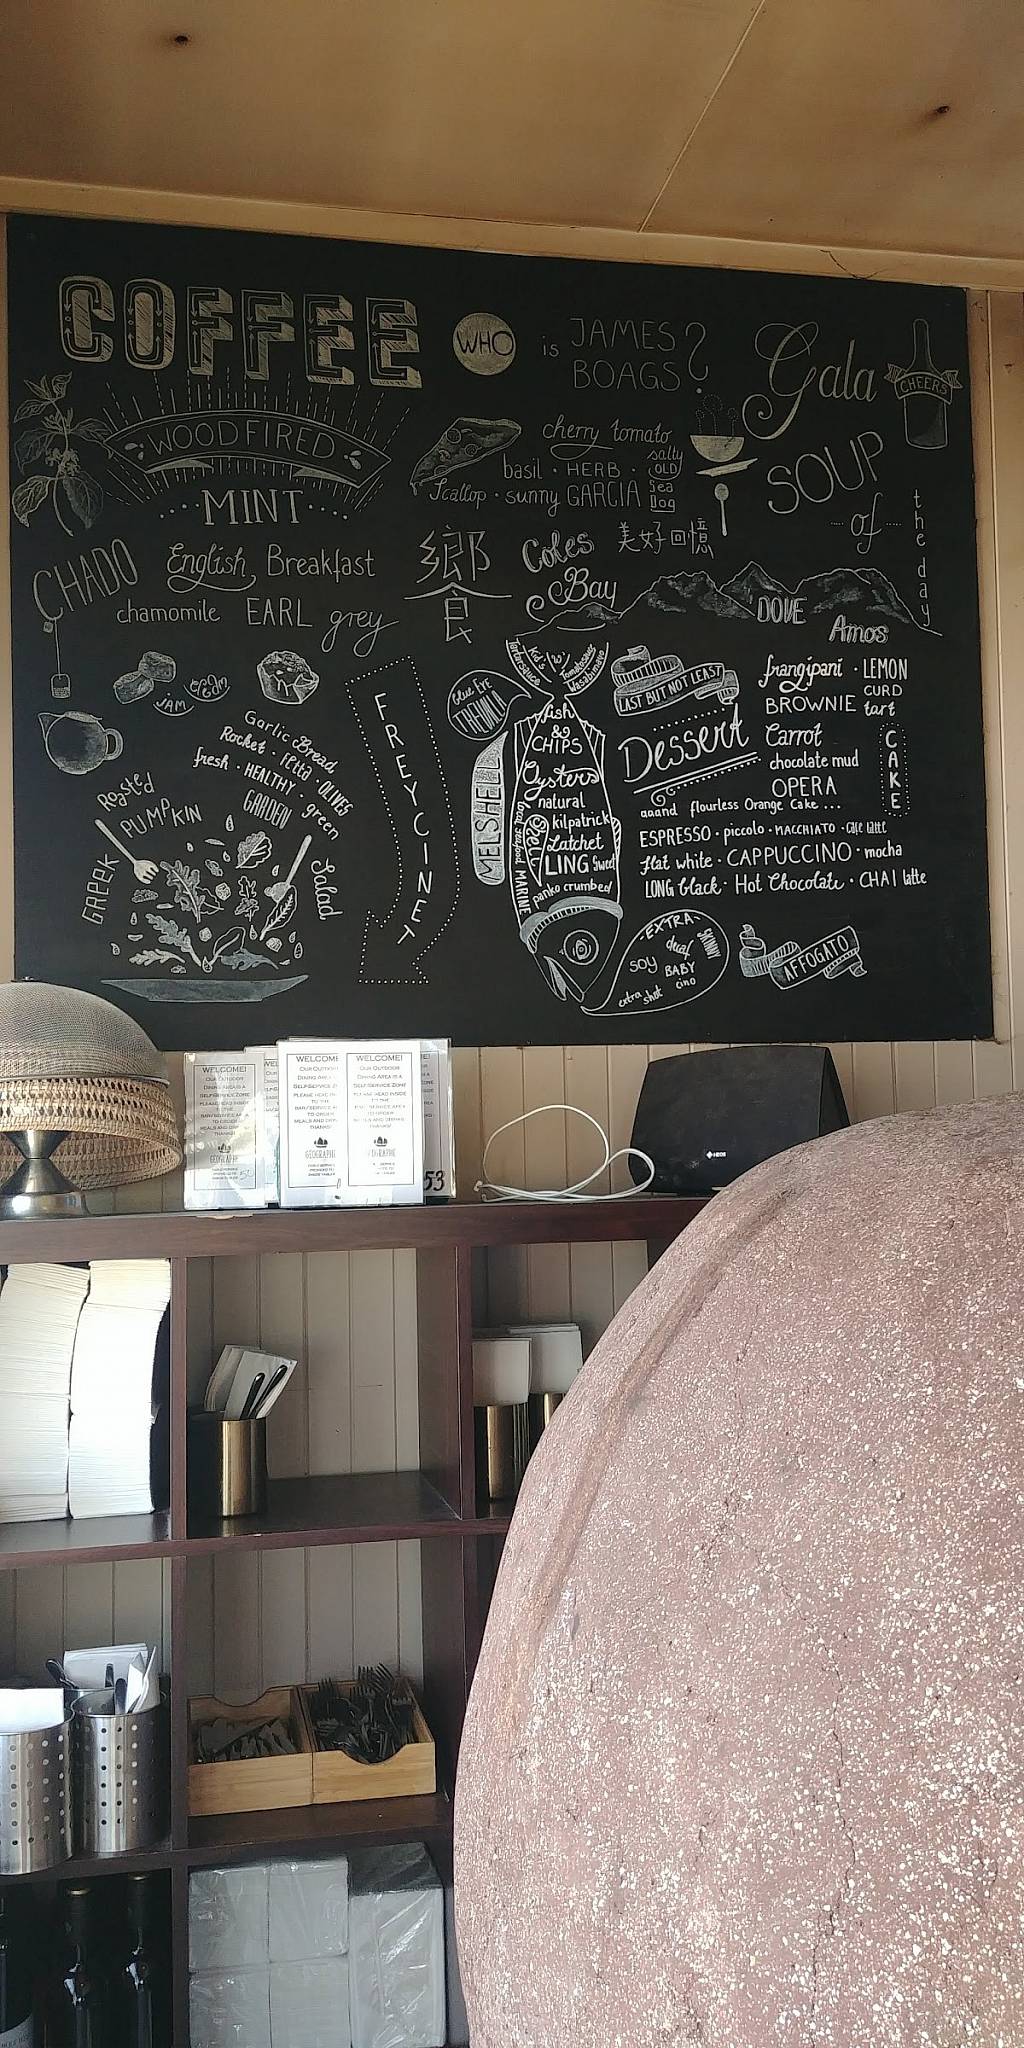 COFFEE
WHO
is JAMES
BOAGS?
Gala
CHEERS
WOODFIRED
MINT
cherry tomato
basil · HERB · salty OLD
Scallop · sunny GARCIA Sea Dog
SOUP
of
the day
CHADO
English Breakfast
chamomile EARL grey
鄉
食
Coles
Bay
美好回憶
DOVE
Amos
JAM
cream
Garlic Bread
Rocket · Fetta · OLIVES
fresh · HEALTHY · green
GARDEN
Roasted
PUMPKIN
GREEK
Salad
FREYCINET
Kid's
Tartarsauce
Tomatosauce
Wasabinayo
Blue EYE
TREVALLA
MELSHELL
fish
&
CHIPS
Oysters
natural
kilpatrick
Latchet
LING Sweet
panko crumbed
local seafood MARINE
LAST BUT NOT LEAST
Dessert
frangipani · LEMON
CURD
BROWNIE tart
Carrot
chocolate mud
OPERA
CAKE
aaand flourless Orange Cake...
ESPRESSO · piccolo · MACCHIATO · Cafe latte
flat white · CAPPUCCINO · mocha
LONG black · Hot Chocolate · CHAI latte
-EXTRA-
SKINNY
soy
BABY
cino
extra shot
AFFOGATO
WELCOME!
Our Outdoor
Dining Area is a
Self-Service Zone
Please head inside
to the
bar/service area
to order
meals and drinks.
Thanks!
WELCOME!
WELCOME!
53
HEOS